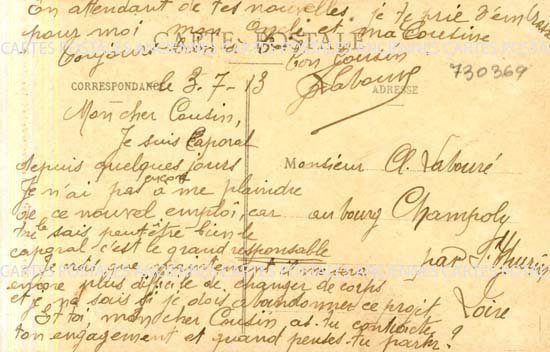 En attendant de tes nouvelles, je te prie d'embrasser
pour moi mon oncle et ma Cousine
Toujours ton bon Cousin
Labouré
CARTE POSTALE
730369
CORRESPONDANCE
ADRESSE
le 3-7-13
Mon cher Cousin,
Je suis Caporal
depuis quelques jours
Je n'ai pas encore à me plaindre
de ce nouvel emploi, car
tu le sais peut être bien le
caporal c'est le grand responsable
encore plus difficile de changer de corps
et je ne sais si je dois abandonner ce projet
Et toi, mon cher Cousin as-tu contracté
ton engagement et quand penses-tu partir ?
Monsieur A. Labouré
au bourg Champoly
par St Thurin
Loire